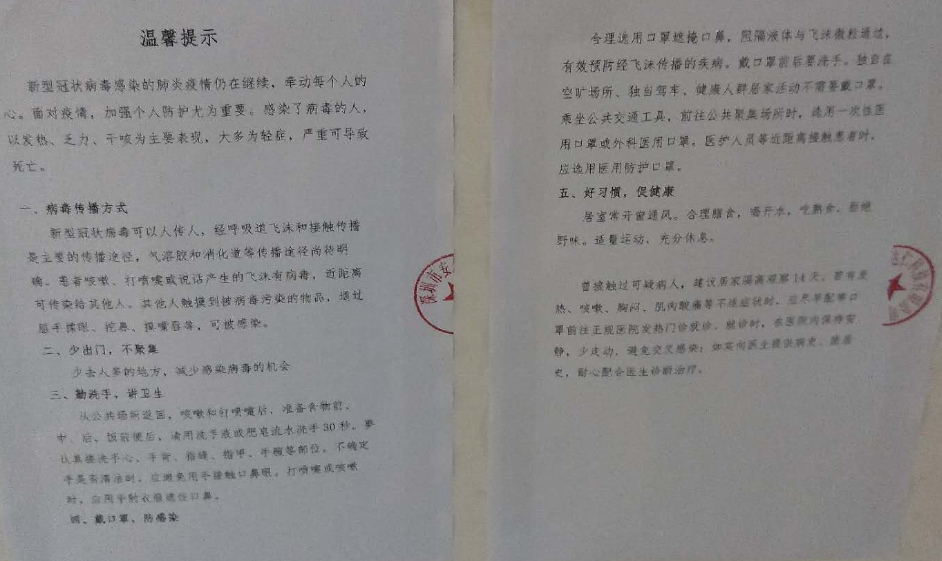 温馨提示
新型冠状病毒感染的肺炎疫情仍在继续，牵动每个人的
心。面对疫情，加强个人防护尤为重要。感染了病毒的人，
以发热、乏力、干咳为主要表现，大多为轻症，严重可导致
死亡。
一、病毒传播方式
新型冠状病毒可以人传人，经呼吸道飞沫和接触传播
是主要的传播途径，气溶胶和消化道等传播途径尚待明
确。患者咳嗽、打喷嚏或说话产生的飞沫有病毒，近距离
可传染给其他人。其他人触摸到被病毒污染的物品，透过
脏手揉眼、挖鼻、摸嘴唇等，可被感染。
二、少出门，不聚集
少去人多的地方，减少感染病毒的机会
三、勤洗手，讲卫生
从公共场所返回，咳嗽和打喷嚏后，准备食物前、
中、后，饭前便后，请用洗手液或肥皂流水洗手30秒。要
认真搓洗手心、手背、指缝、指甲、手腕等部位，不确定
手是否清洁时，应避免用手接触口鼻眼。打喷嚏或咳嗽
时，应用手肘衣服遮住口鼻。
四、戴口罩、防感染
合理选用口罩遮掩口鼻，阻隔液体与飞沫微粒通过，
有效预防经飞沫传播的疾病。戴口罩前后要洗手。独自在
空旷场所、独当驾车、健康人群居家活动不需要戴口罩。
乘坐公共交通工具，前往公共聚集场所时，选用一次性医
用口罩或外科医用口罩，医护人员等近距离接触患者时，
应选用医用防护口罩。
五、好习惯，促健康
居室常开窗通风。合理膳食，喝开水，吃熟食，拒绝
野味。适量运动，充分休息。
曾接触过可疑病人，建议居家隔离观察14天。若有发
热、咳嗽、胸闷、肌肉酸痛等不适症状时，应尽早配带口
罩前往正规医院发热门诊就诊。就诊时，在医院内保持安
静，少走动，避免交叉感染；如实向医生提供病史、旅居
史，耐心配合医生诊断治疗。
深圳市安